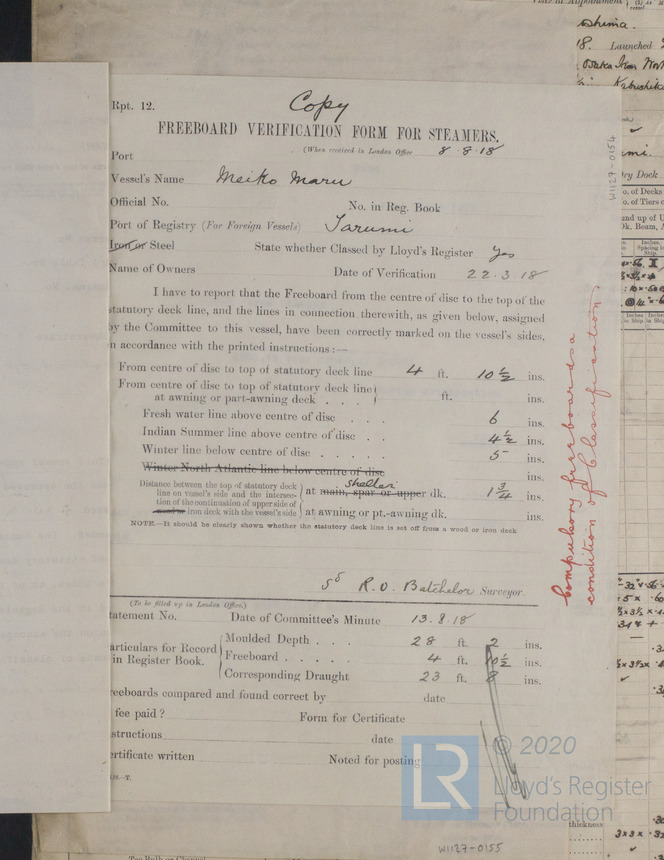 Rpt. 12.
Copy
FREEBOARD VERIFICATION FORM FOR STEAMERS.
(When received in London Office 8.8.18
Port
Vessel's Name Meiko Maru
Official No. No. in Reg. Book
Port of Registry (For Foreign Vessels) Tarumi
Iron or Steel State whether Classed by Lloyd's Register Yes
Name of Owners Date of Verification 22.3.18
I have to report that the Freeboard from the centre of disc to the top of the
statutory deck line, and the lines in connection therewith, as given below, assigned
by the Committee to this vessel, have been correctly marked on the vessel's sides,
in accordance with the printed instructions:—
From centre of disc to top of statutory deck line 4 ft. 10 1/2 ins.
From centre of disc to top of statutory deck line
at awning or part-awning deck . . . ft. ins.
Fresh water line above centre of disc . . . 6 ins.
Indian Summer line above centre of disc . . 4 1/2 ins.
Winter line below centre of disc . . . . . 5 ins.
Winter North Atlantic line below centre of disc ins.
shelter
Distance between the top of statutory deck
line on vessel's side and the intersec- at main, spar or upper dk. 1 3/4 ins.
tion of the continuation of upper side of
wood or iron deck with the vessel's side at awning or pt.-awning dk. ins.
NOTE.—It should be clearly shown whether the statutory deck line is set off from a wood or iron deck
Sd R.O. Batchelor Surveyor.
(To be filled up in London Office.)
tatement No. Date of Committee's Minute 13.8.18
articulars for Record Moulded Depth . . . 28 ft. 2 ins.
in Register Book. Freeboard . . . . . 4 ft. 10 1/2 ins.
Corresponding Draught 23 ft. 8 ins.
reeboards compared and found correct by date
fee paid ? Form for Certificate
structions date
ertificate written Noted for posting
Compulsory freeboard as a
condition of Classification
W1127-0154
© 2020
LR Lloyd's Register
Foundation
W1127-0155
18. Launched
Osaka Iron Wor
Kabushiki
ry Dock
o. of Decks
o. of Tiers o
Dk. Beam,
thickness